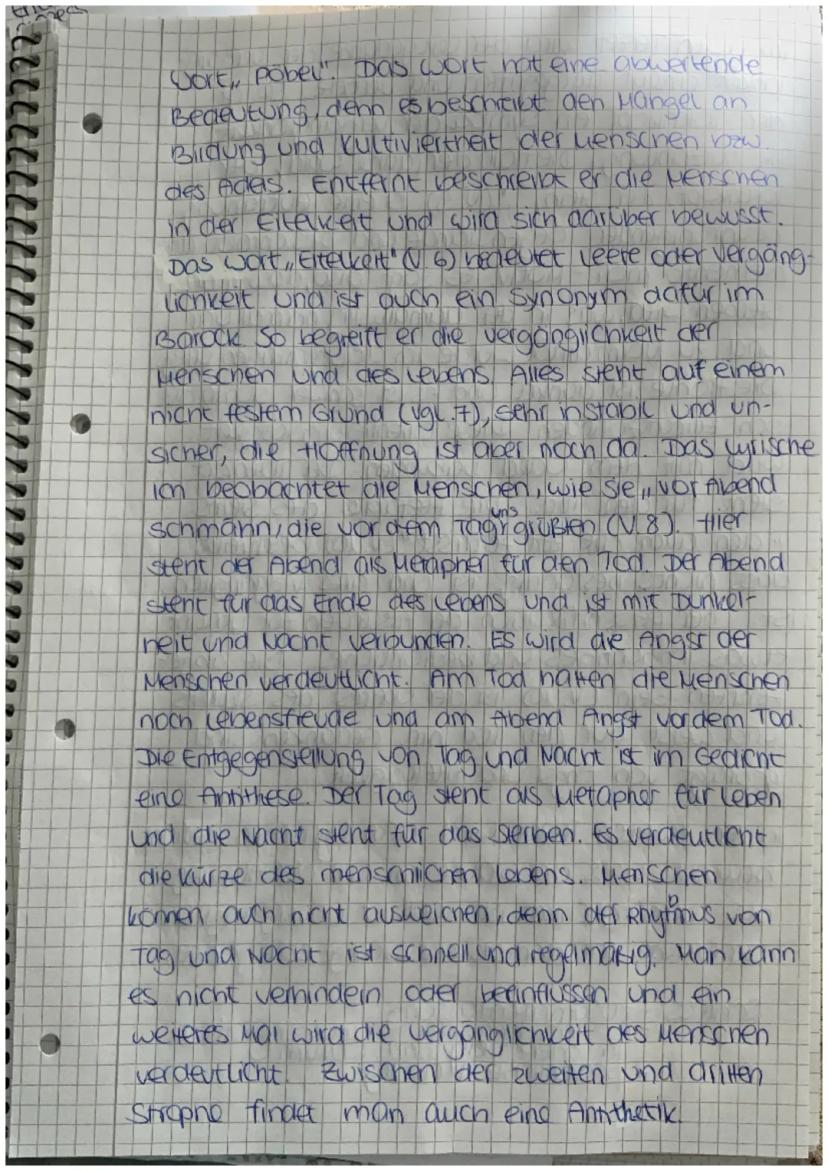 Wort „Pöbel". Das Wort hat eine abwertende
Bedeutung, denn es beschreibt den Mangel an
Bildung und Kultiviertheit der Menschen bzw.
des Adels. Entfernt beschreibt er die Menschen
in der Eitelkeit und wird sich darüber bewusst.
Das Wort „Eitelkeit" (V. 6) bedeutet Leere oder Vergäng-
lichkeit und ist auch ein Synonym dafür im
Barock. So begreift er die Vergänglichkeit der
Menschen und des Lebens. Alles steht auf einem
nicht festem Grund (vgl. 7), sehr instabil und un-
sicher, die Hoffnung ist aber noch da. Das lyrische
Ich beobachtet die Menschen, wie sie „vor Abend
schmähn, die vor dem Tag uns grüßten (V. 8). Hier
steht der Abend als Metapher für den Tod. Der Abend
steht für das Ende des Lebens und ist mit Dunkel-
heit und Nacht verbunden. Es wird die Angst der
Menschen verdeutlicht. Am Tod hatten die Menschen
noch Lebensfreude und am Abend Angst vor dem Tod.
Die Entgegenstellung von Tag und Nacht ist im Gedicht
eine Antithese. Der Tag steht als Metapher für Leben
und die Nacht steht für das Sterben. Es verdeutlicht
die Kürze des menschlichen Lebens. Menschen
können auch nicht ausweichen, denn der Rhythmus von
Tag und Nacht ist schnell und regelmäßig. Man kann
es nicht verhindern oder beeinflussen und ein
weiteres Mal wird die Vergänglichkeit des Menschen
verdeutlicht. Zwischen der zweiten und dritten
Strophe findet man auch eine Antithetik.